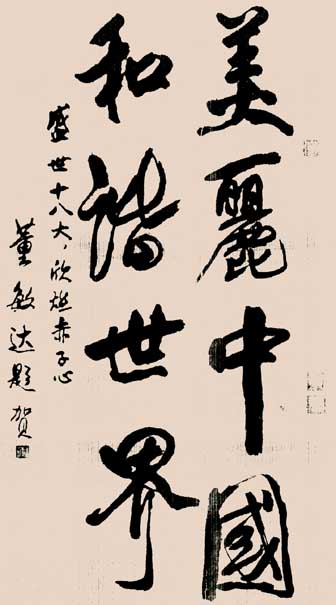 美麗中國
和諧世界
盛世十八大，欣燃赤子心
董敏达題贺